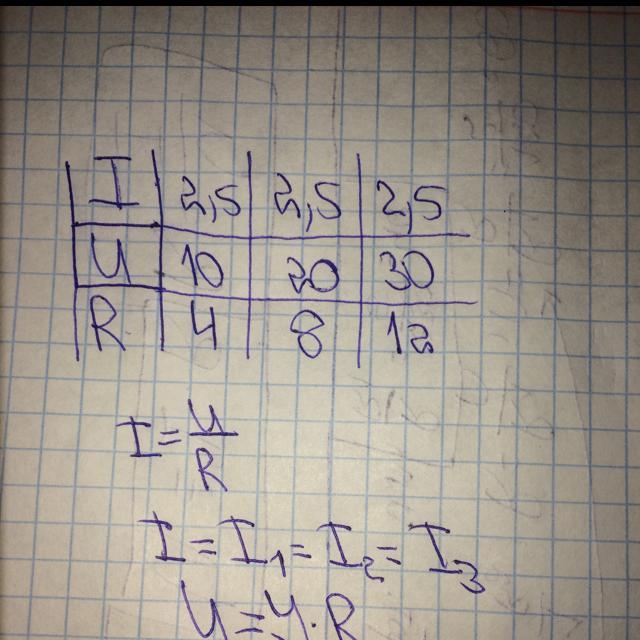 I 2,5 2,5 2,5
U 10 20 30
R 4 8 12
I = U/R
I = I₁ = I₂ = I₃
U = U · R